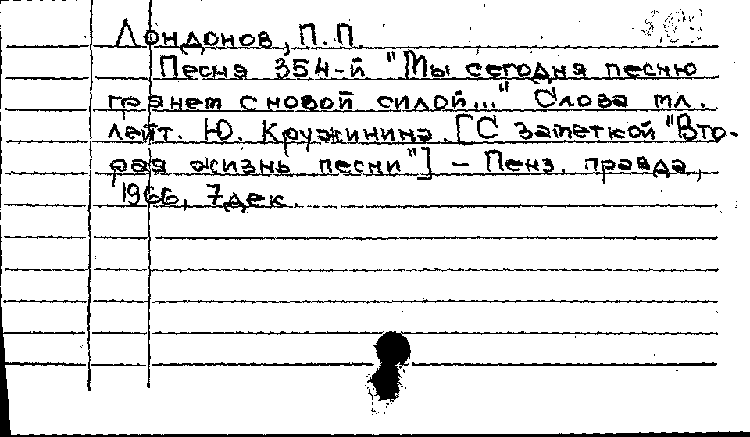 Лондонов, П.П.
Песня 354-й "Мы сегодня песню
грянем с новой силой..." Слова мл.
лейт. Ю. Кружинина. [С заметкой "Вто-
рая жизнь песни"] – Пенз. правда,
1966, 7 дек.